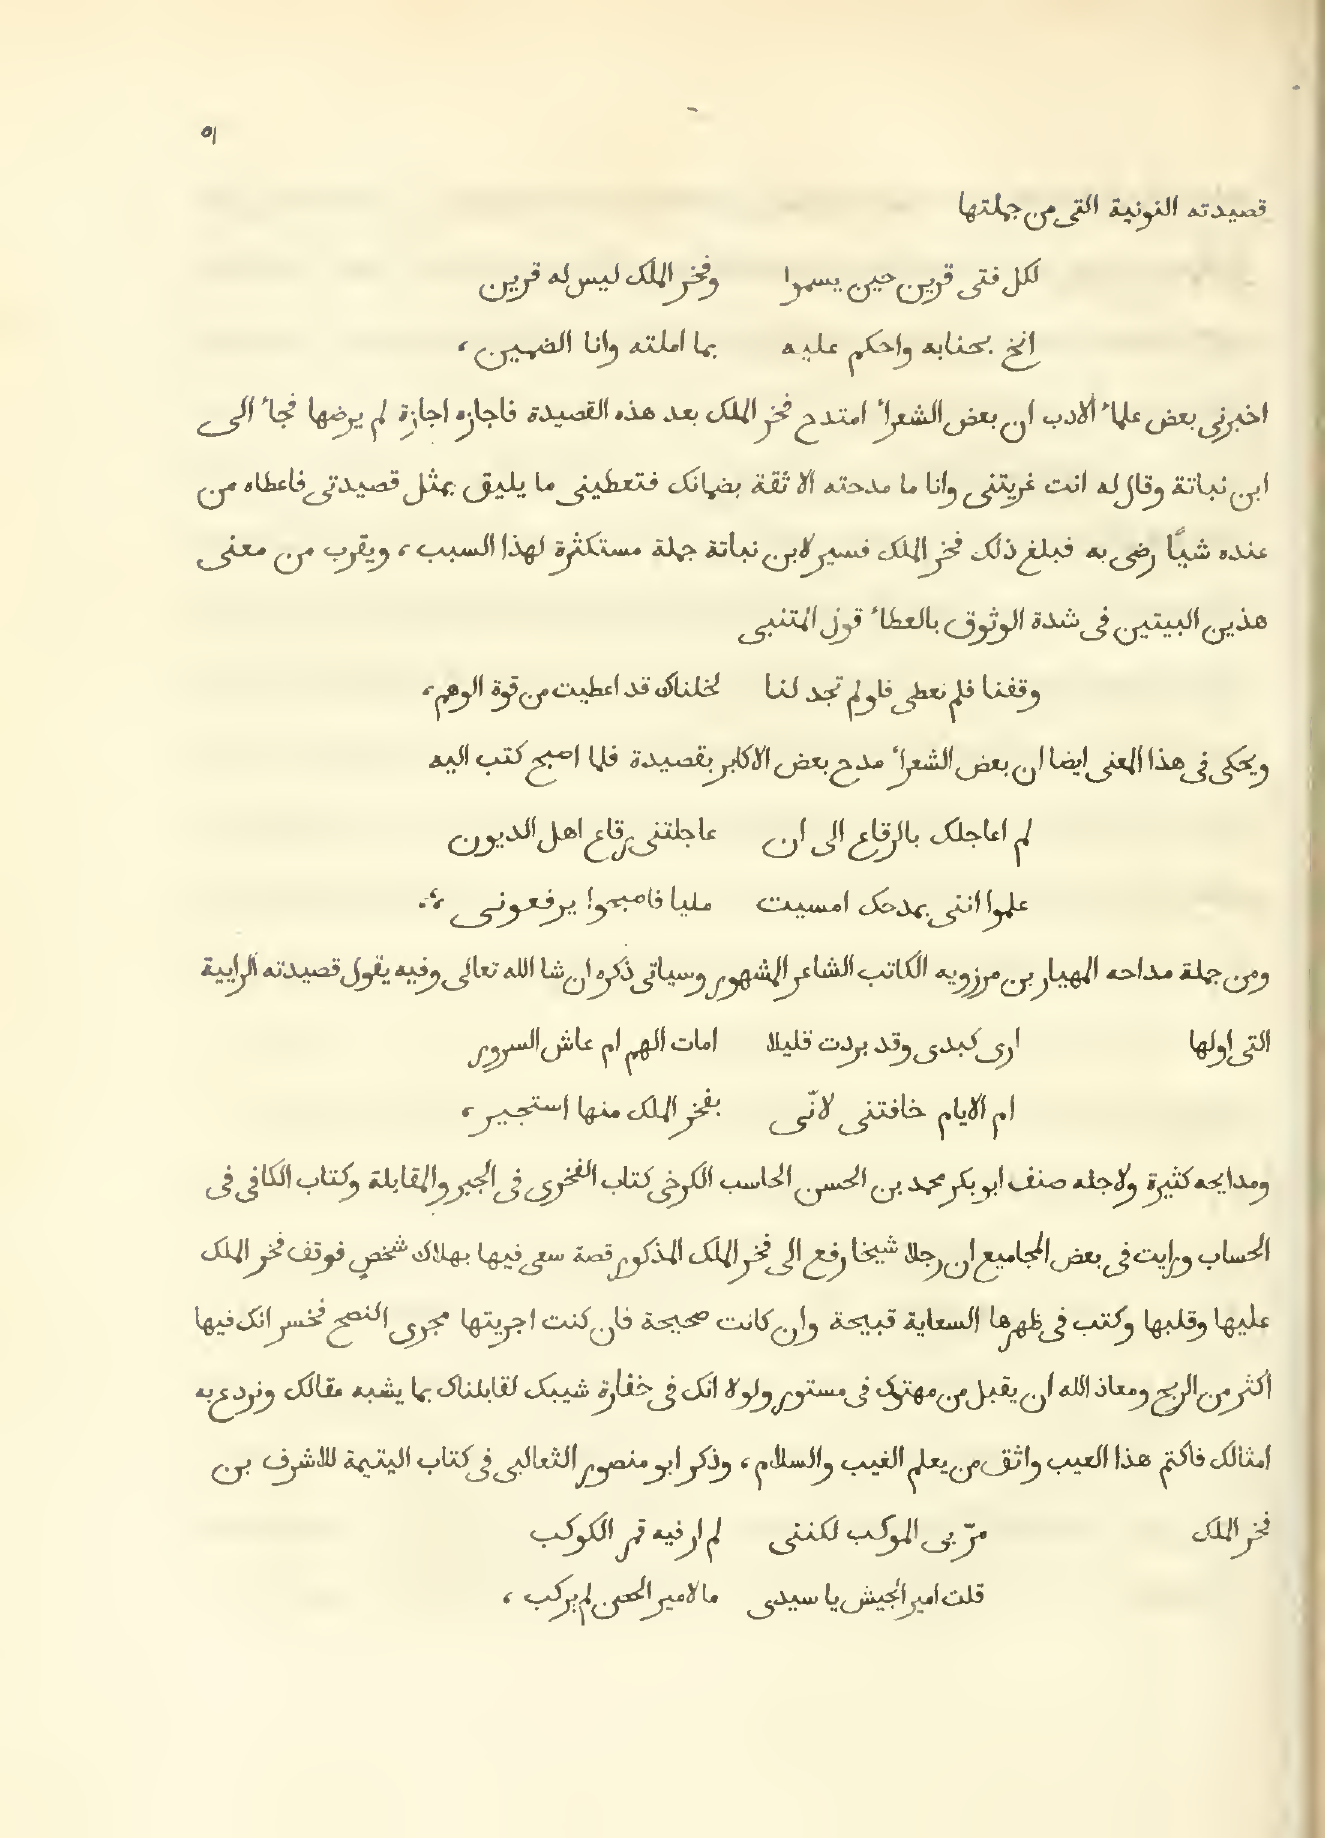 ٥١
قصيدته النونية التى من جملتها
لكل فتى قرين حين يسموا وفخر الملك ليس له قرين
انخ بجنابه واحكم عليه بما املته وانا الضمين ،
اخبرنى بعض علمآء الادب ان بعض الشعرآء امتدح فخر الملك بعد هذه القصيدة فاجازه اجازة لم يرضها فجآء الى
ابن نباتة وقال له انت غريتنى وانا ما مدحته الا ثقة بضمانك فتعطينى ما يليق بمثل قصيدتى فاعطاه من
عنده شيًا رضى به فبلغ ذلك فخر الملك فسير لابن نباتة جملة مستكثرة لهذا السبب ، ويقرب من معنى
هذين البيتين فى شدة الوثوق بالعطآء قول المتنبى
وقفنا فلم نعطى فلو لم تجد لنا لخلناك قد اعطيت من قوة الوهم ،
ويحكى فى هذا المعنى ايضا ان بعض الشعرآء مدح بعض الاكابر بقصيدة فلما اصبح كتب اليه
لم اعاجلك بالرقاع الى ان عاجلتنى رقاع اهل الديون
علموا اننى بمدحك امسيت مليا فاصبحوا يرفعونى ؞
ومن جملة مداحه المهيار بن مرزويه الكاتب الشاعر المشهور وسياتى ذكره ان شا الله تعالى وفيه يقول قصيدته الرايية
التى اولها ارى كبدى وقد بردت قليلا امات الهم ام عاش السرور
ام الايام خافتنى لانّى بفخر الملك منها استجير ،
ومدايحه كثيرة ولاجله صنف ابو بكر محمد بن الحسن الحاسب الكرخى كتاب الفخرى فى الجبر والمقابلة وكتاب الكافى فى
الحساب ورايت فى بعض المجاميع ان رجلا شيخا رفع الى فخر الملك المذكور قصة سعى فيها بهلاك شخص فوقف فخر الملك
عليها وقلبها وكتب فى ظهرها السعاية قبيحة وان كانت صحيحة فان كنت اجريتها مجرى النصح فخسرانك فيها
أكثر من الربح ومعاذ الله ان يقبل من مهتوك فى مستور ولولا انك فى خفارة شيبك لقابلناك بما يشبه مقالك ونردع به
امثالك فاكتم هذا العيب واتق من يعلم الغيب والسلام ، وذكر ابو منصور الثعالبى فى كتاب اليتيمة للاشرف بن
فخر الملك مرّ بى الموكب لكننى لم ار فيه قمر الكوكب
قلت امير الجيش يا سيدى ما لامير الحسن لم يركب ،